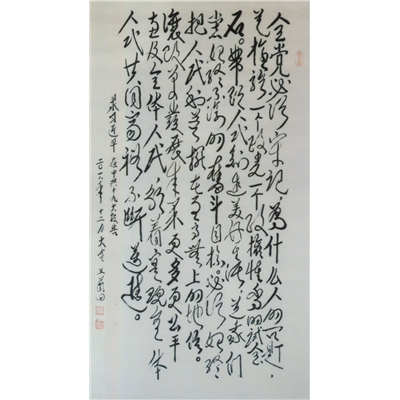 全党必须牢记,为什么人的问题,
是检验一个政党一个政权性质的试金
石。带领人民创造美好生活,是我们
党始终不渝的奋斗目标。必须始终
把人民利益摆在至高无上的地位。
让改革发展成果更多更公平
惠及全体人民朝着实现全体
人民共同富裕不断迈进。
录习近平在中共十九大报告
年十二月大雪王